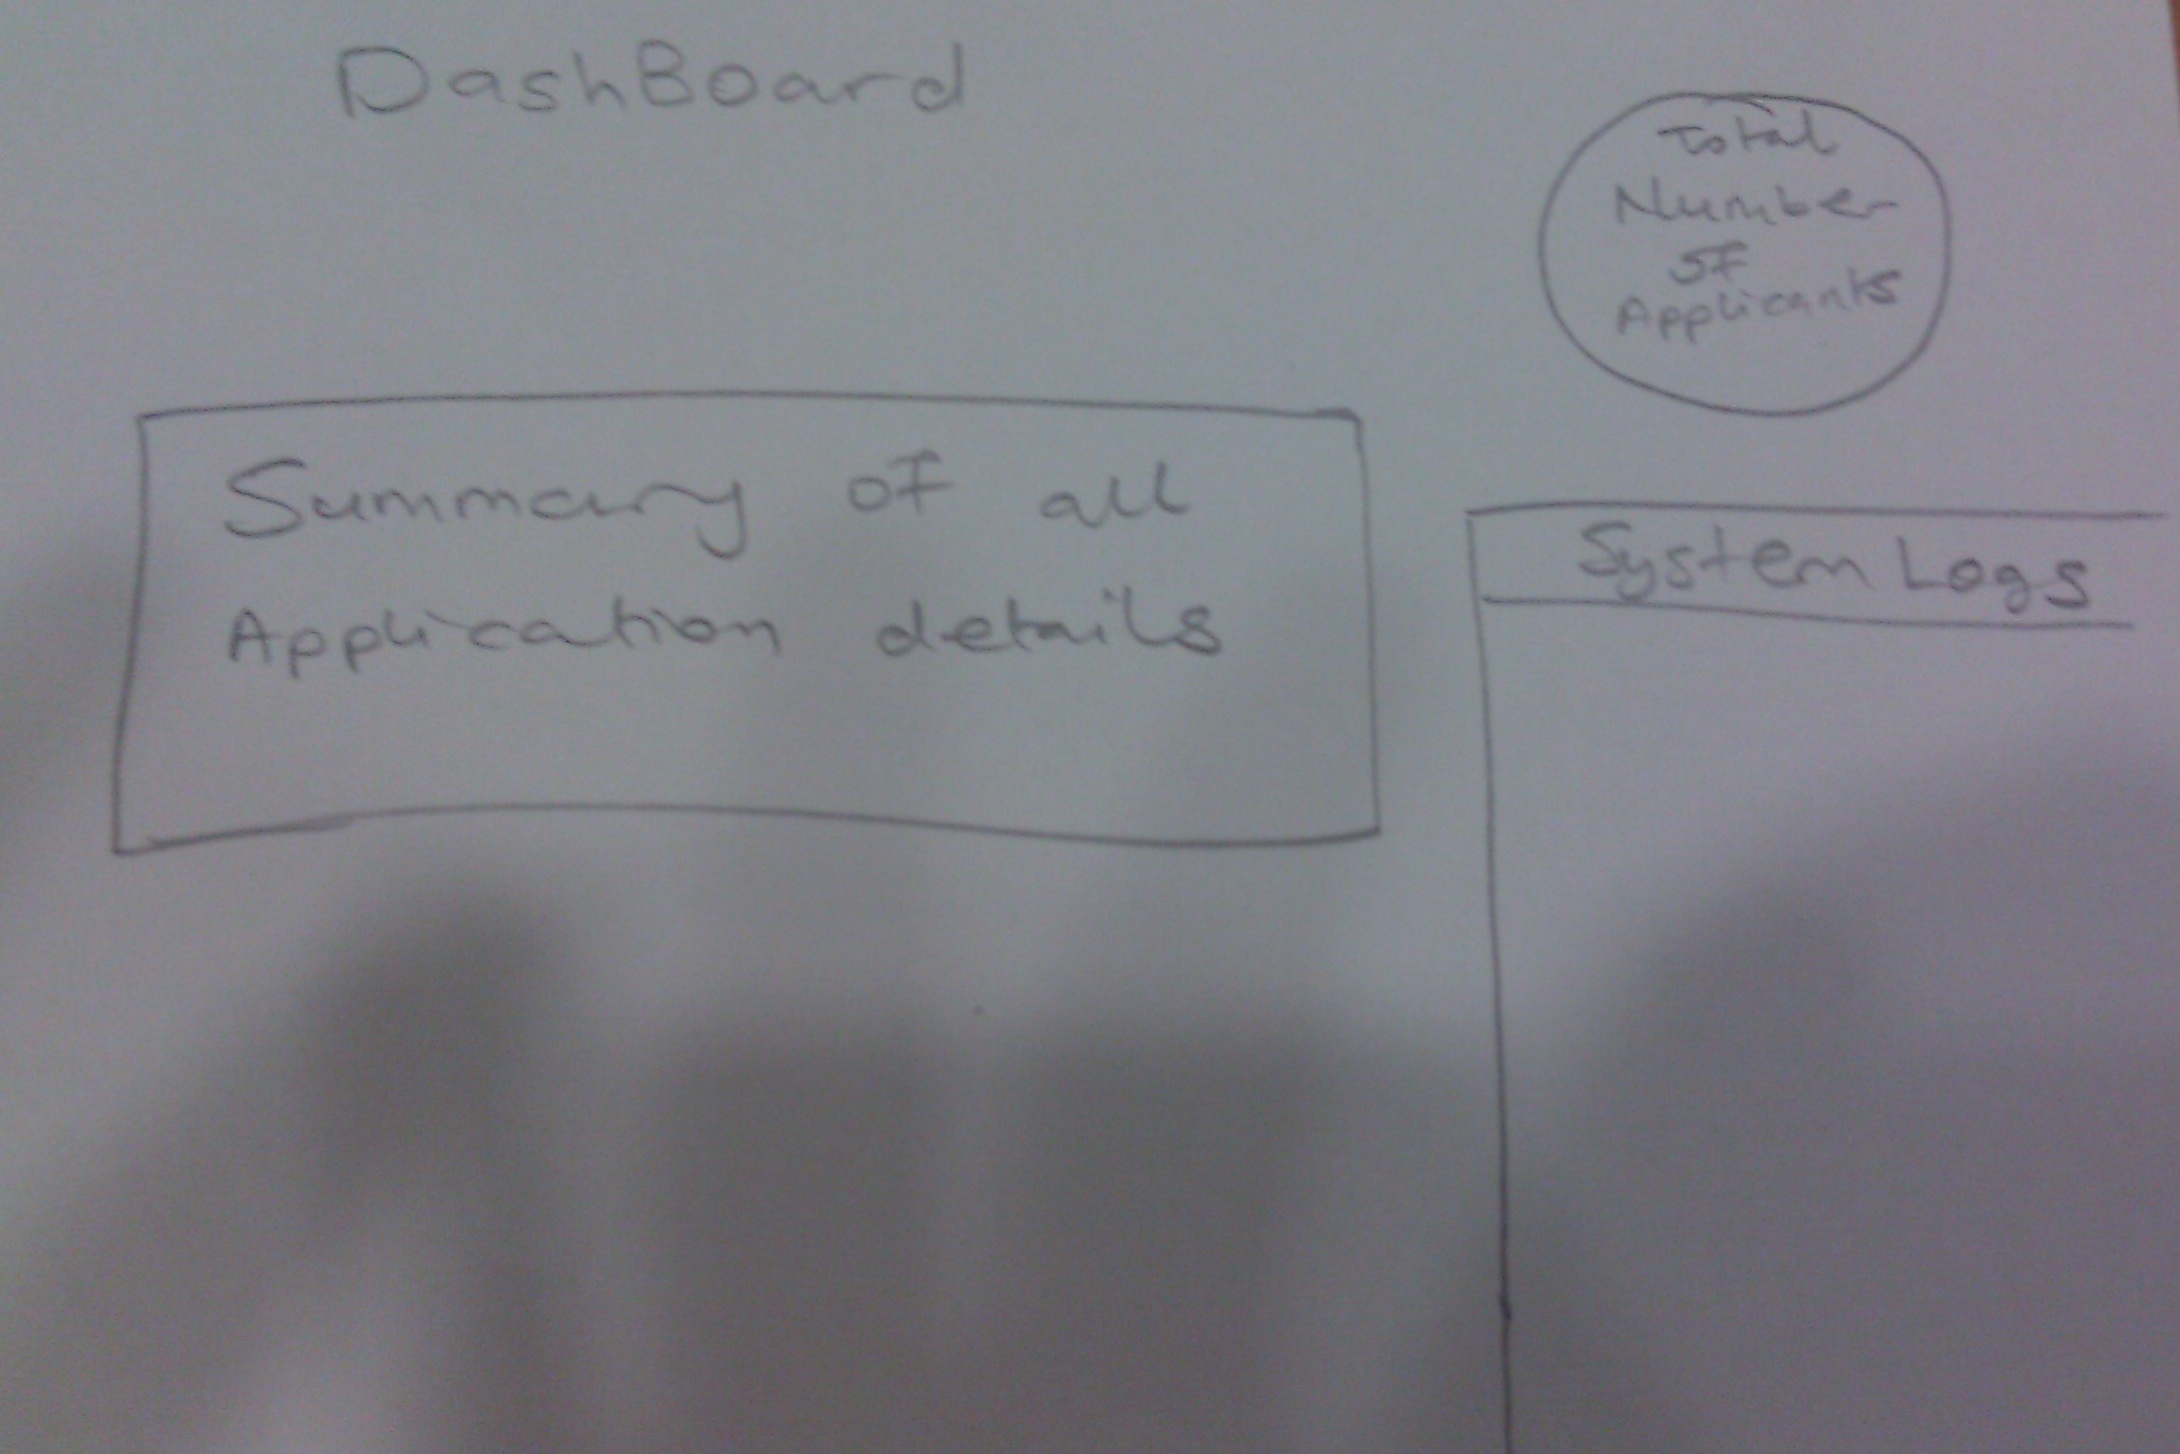 DashBoard
Total
Number
of
Applicants
Summary of all
Application details
System Logs